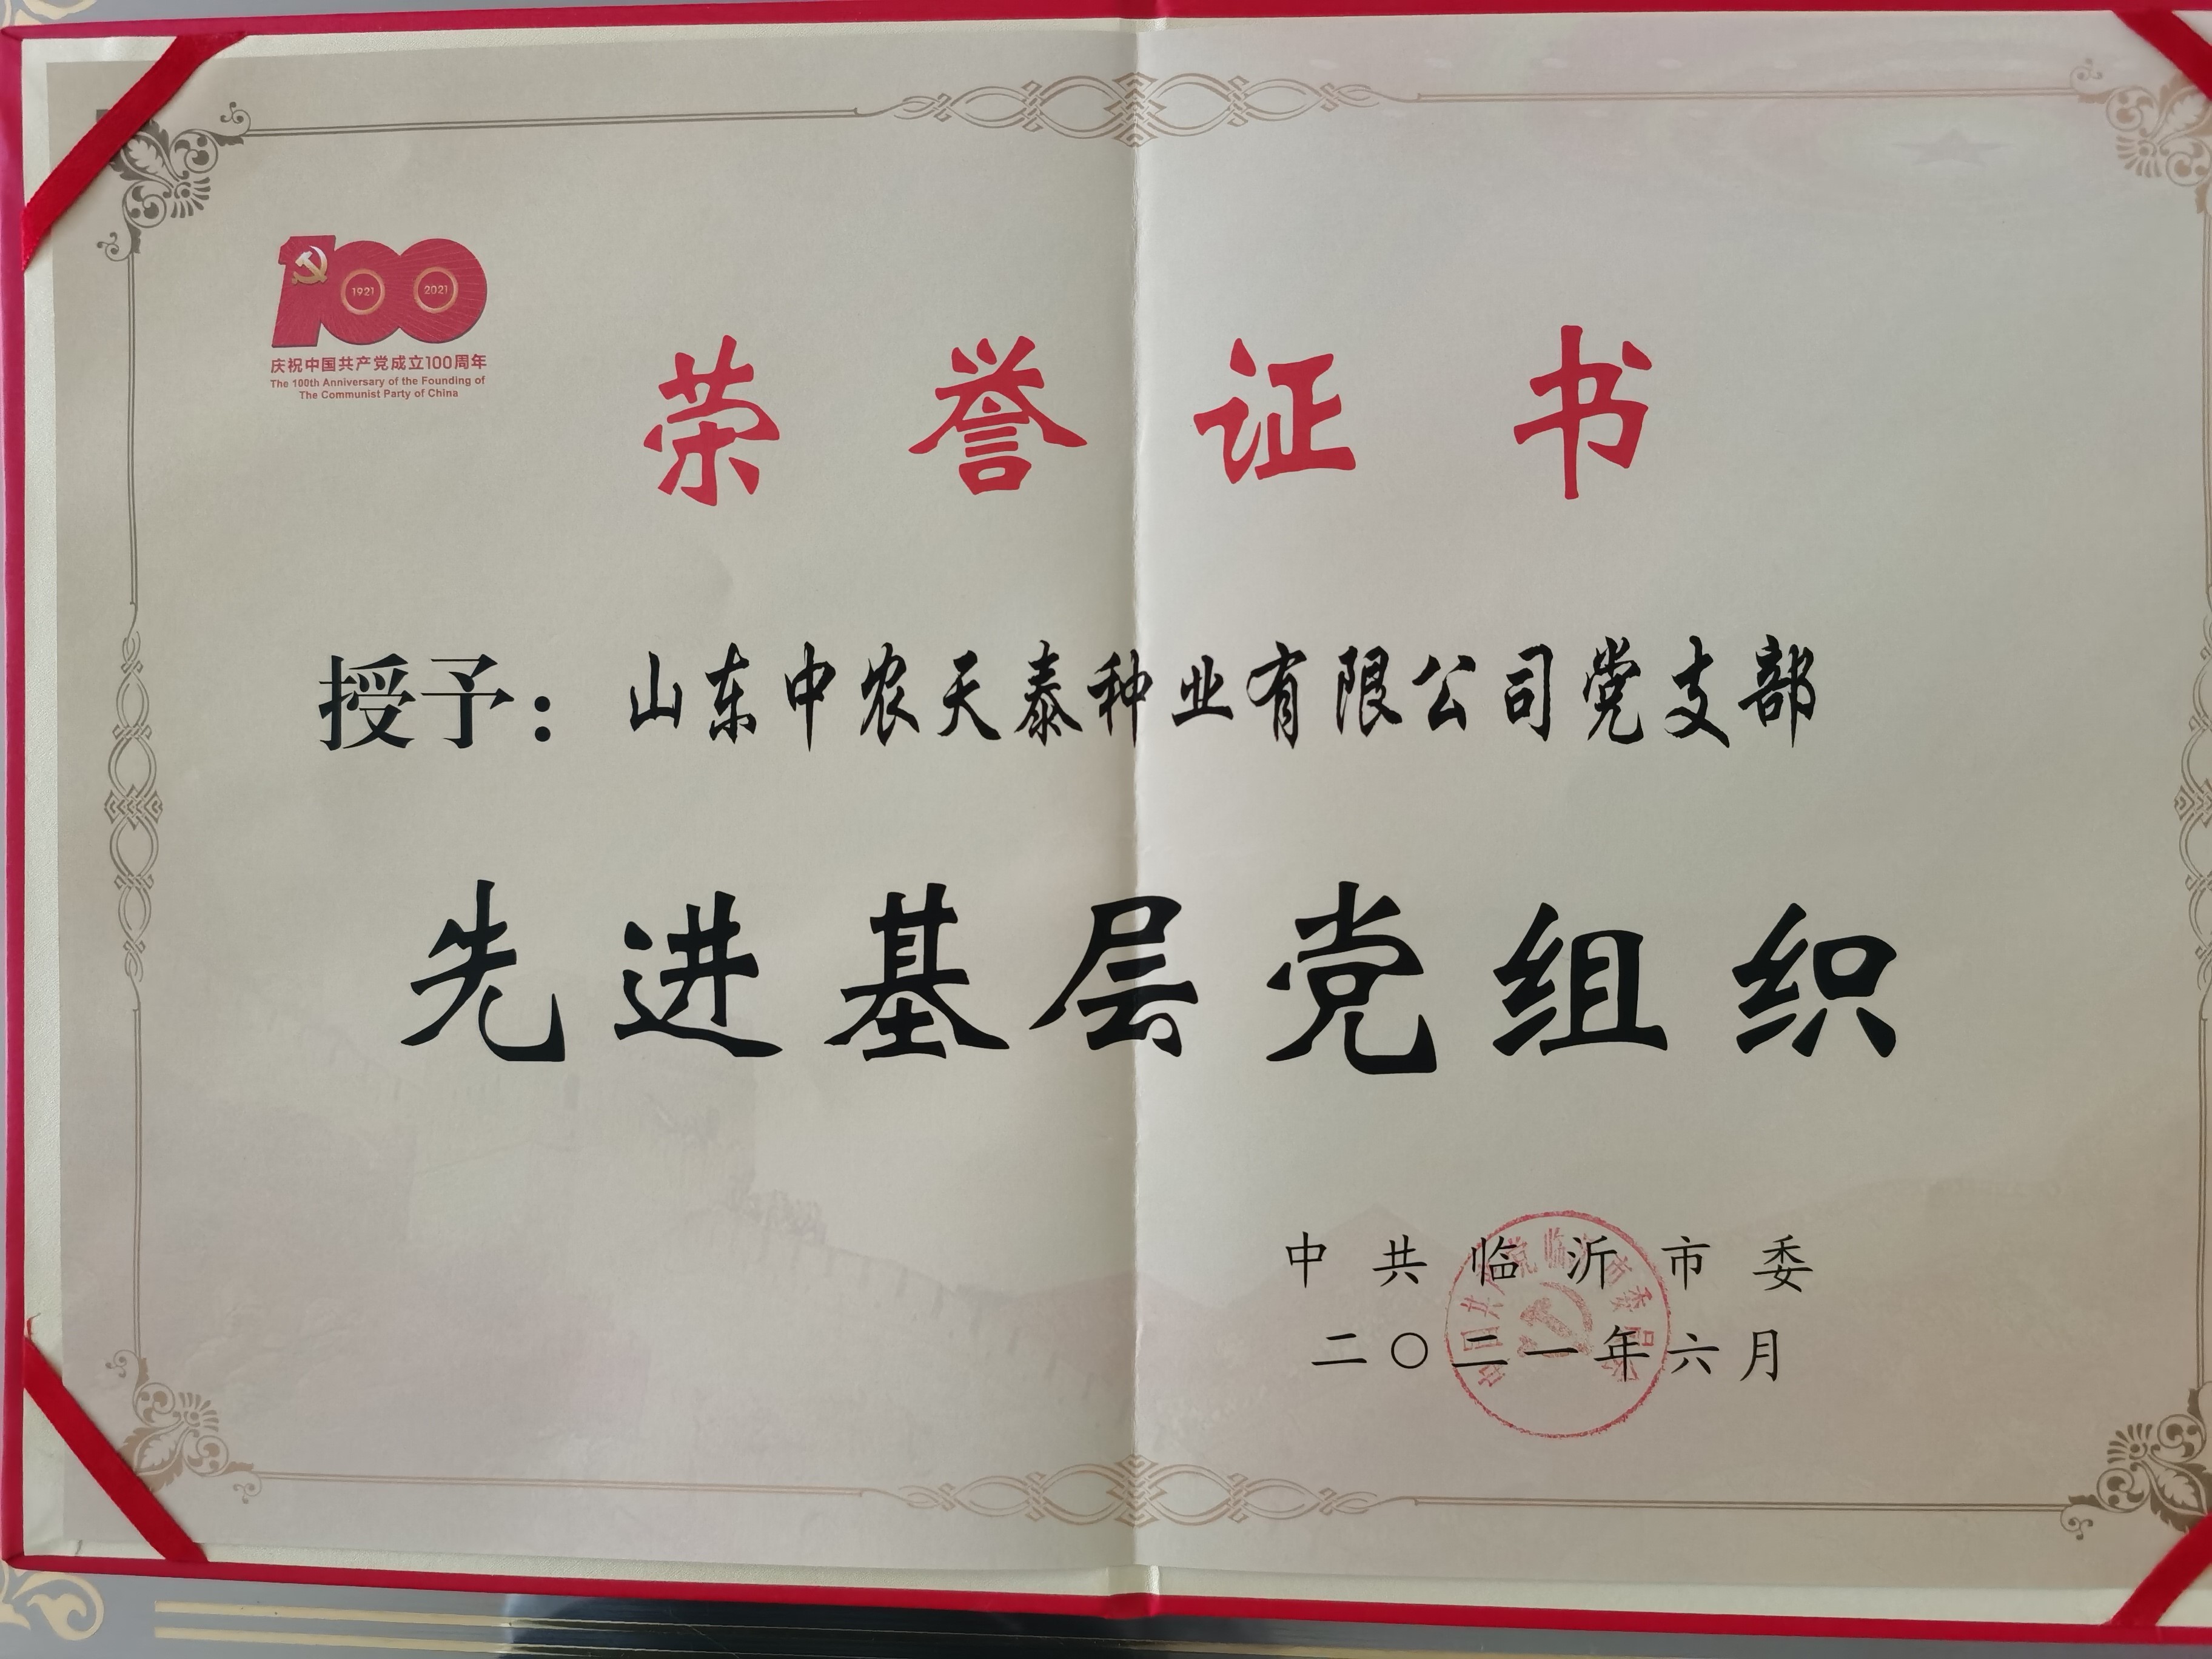 1921 2021
庆祝中国共产党成立100周年
The 100th Anniversary of the Founding of
The Communist Party of China
荣誉证书
授予：山东中农天泰种业有限公司党支部
先进基层党组织
中共临沂市委
二〇二一年六月
中国共产党临沂市委员会